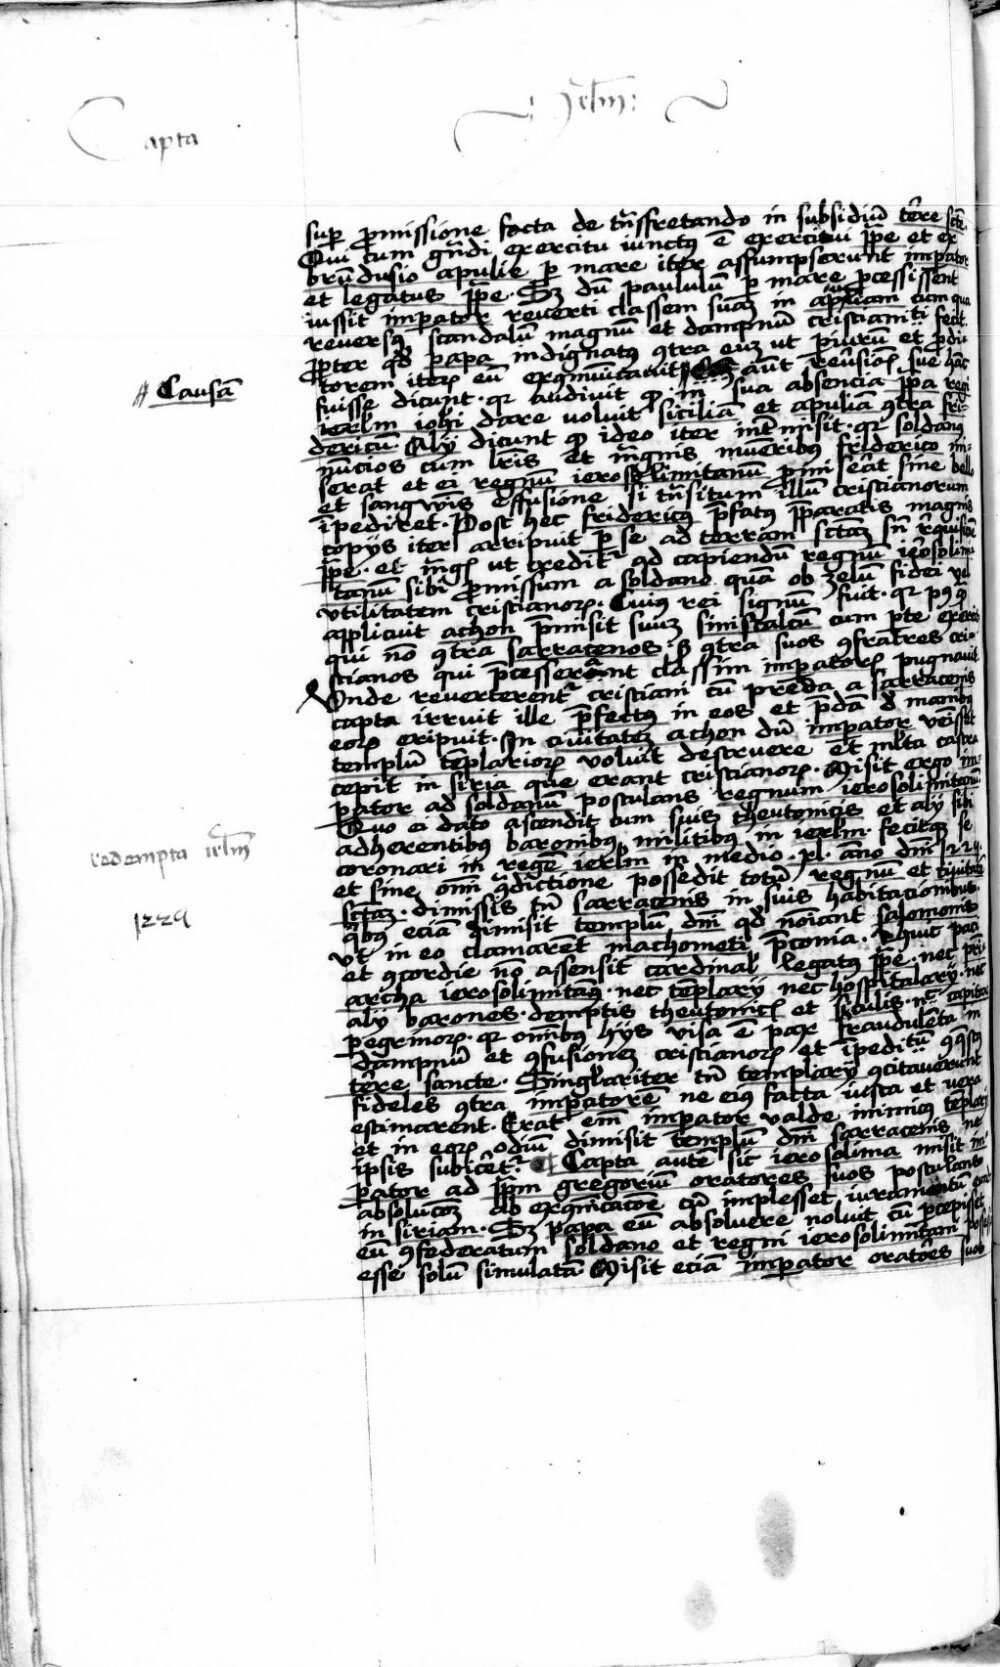 Capta
Jrlm̄:
sup̲ promissione facta de tn̄sfretando in subsidiū tr̄re sctē
Qui cum gn̄di exercitu iunctꝰ ē exercitui pp̄e et ex
brūdusio apulie p̲ mare iter assumpserunt imp̲ator
et legatus pp̄e. Sꝫ dū paululū p̲ mare p̲cessissent
iussit imp̲ator reverti classem suaꝫ in apuliam cum qua
reversꝰ scandalū magnū et dampnū cristianiti fecit
propter qd̄ papa indignatꝰ ꝯtra euꝫ ut p̲iurū et prodi
torem iterꝝ eū excōmūicavit aūt rev̄sionꝭ sue hāc
fuisse dicunt. qꝛ audivit ꝙ in sua absencia pp̄a regi
ierlm̄ ioh̄i dare voluit siciliā et apuliā ꝯtra fri
dericū. Alij dicunt ꝙ ideo iter int̄misit. qꝛ soldanꝰ
nūcios cum lr̄is et mḡnis mūeribꝰ friderico mi
serat et ei regnū ierosolimitanū promiserat sine bello
et sangwīs effusione si tn̄situm illū cristianorum
īpediret. Post hec fridericꝰ p̄fatꝰ pp̲aratis magnis
copijs iter arripuit p̲ se ad terram sctāꝫ sn̄ r̄quisicōe
pp̄e. et mḡꝭ ut creditᷣ ad capiendū regnū ierosolimi
tanū sibi promissum a soldano quā ob zelū fidei vel
utilitatem cristianorꝝ. Cuius rei signū fuit. qꝛ pꝰ ꝙ
applicuit achon p̄misit suuꝫ siniscalcū cum p̲te exercitꝰ
qui nō ꝯtra sarracenos. sꝫ ꝯtra suos ꝯfratres cri
stianos qui p̄cesserant classim imp̲atorꝭ pugnavit
Unde reverterentᷣ cristiani cū preda a sarracenis
capta irruit ille p̄fectꝰ in eos et p̄dā d̄ manibꝰ
eorꝝ eripuit. In civitateꝫ achon dū imp̲ator venisset
templū tēplariorꝝ voluit destruere et ml̄ta castra
cepit in siria que erant cristianorꝝ. Misit ergo im
p̲ator ad soldanū postulans regnum ierosolimitanū
Quo ei dato ascendit cum suis theutonicis et alij sibi
adherentibꝰ baronibꝰ militibꝰ in ierlm̄. fecitqꝫ se
coronari in regē ierlm̄ in medio .xl. āno dn̄i 1229.
et sine omī ꝯdictione possedit totū regnū et civitatē
sctāꝫ. dimissis tn̄ sarracenis in suis habitacionibꝰ.
qͥbꝰ eciā dimisit templū dn̄i qd̄ noīant salomonis
ut in eo clamarēt machometi p̄conia. Huic paci
et ꝯcordie nō assensit cardinal̄ legatꝰ pp̄e. nec pri
archa ierosolimitanꝰ. nec tēplarij nec hospitalarij. nec
alij barones. demptis theutonicꝭ et siculis. nc̄ capita
p̲egrinorꝝ. qꝛ omībꝰ hijs visa ē pax fraudulēta in
dampnū et ꝯfusioneꝫ cristianorꝝ et īpeditū ꝯqͥstꝰ
tr̄re sancte. Singlͣariter tn̄ templarij ꝯcitaverunt
fideles ꝯtra imp̲atorē ne eius facta iusta et vera
estimarent. Erat em̄ imp̲ator valde inimicꝰ tēplarijs
et in eorꝝ odiū dimisit templū dn̄i sarracenis ne
ipsis subicēt: Capta autē sic ierosolima misit im
p̲ator ad pp̄m gregoriū oratores suos postulans
absolucōꝫ ab excōmūicacōe cū implesset iuramentū eundi
in siriam. Sꝫ papa eū absolvere noluit cū p̲cepisset
eū ꝯfederatum soldano et regni ierosolimitani posses
esse solū simulatā. Misit eciā imp̲ator oratores suos
Causā
redempta irlm̄
1229